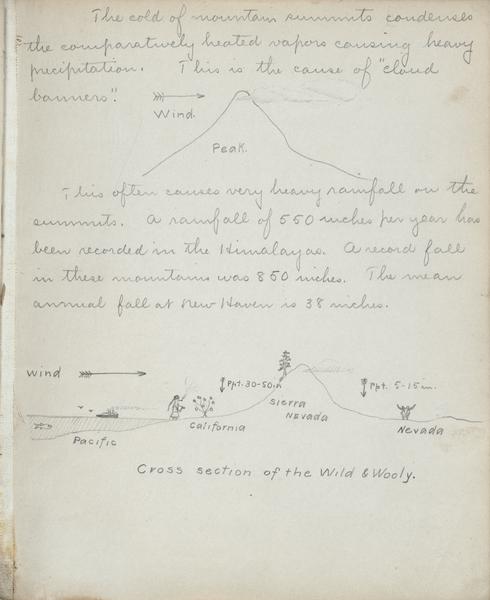 The cold of mountain summits condenses
the comparatively heated vapors causing heavy
precipitation. This is the cause of "cloud
banners".
Wind.
Peak.
This often causes very heavy rainfall on the
summits. A rainfall of 550 inches per year has
been recorded in the Himalayas. A record fall
in these mountains was 850 inches. The mean
annual fall at New Haven is 38 inches.
Wind
Ppt. 30-50in
Ppt. 5-15in.
Sierra
Nevada
California
Nevada
Pacific
Cross section of the Wild & Wooly.